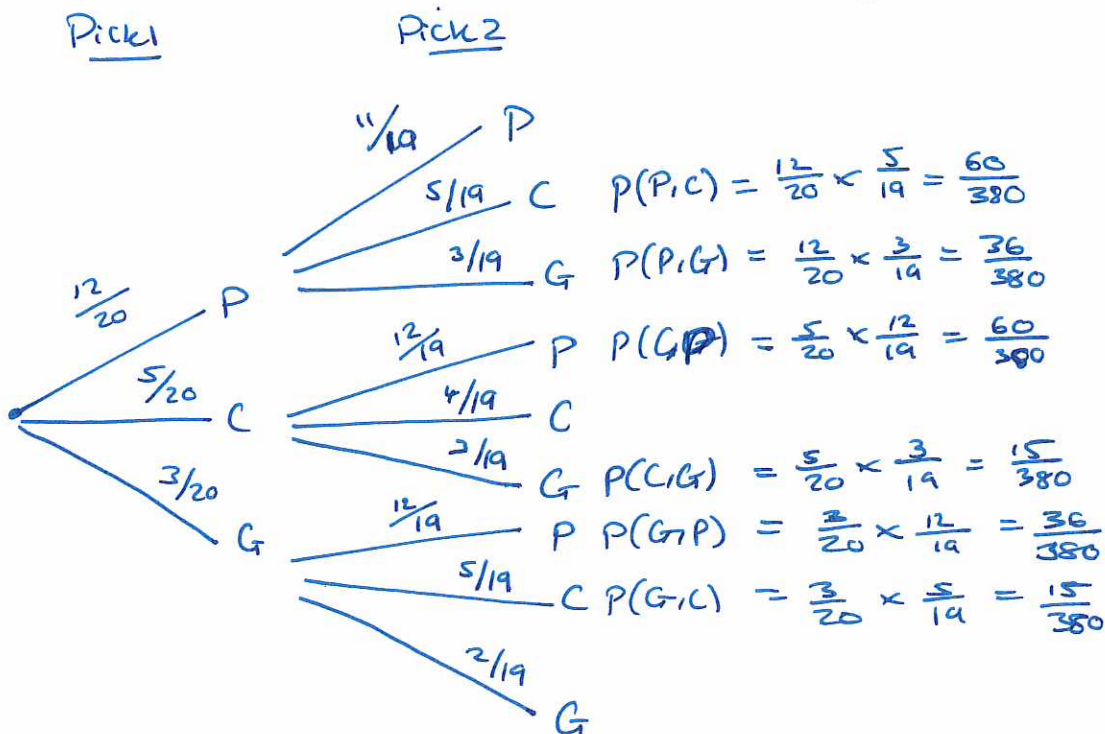 Pick1 Pick2
11/19 P
5/19 C P(P,C) = 12/20 × 5/19 = 60/380
3/19 G P(P,G) = 12/20 × 3/19 = 36/380
12/20 P
12/19 P P(C,P) = 5/20 × 12/19 = 60/380
5/20 C
4/19 C
3/19 G P(C,G) = 5/20 × 3/19 = 15/380
3/20 G
12/19 P P(G,P) = 3/20 × 12/19 = 36/380
5/19 C P(G,C) = 3/20 × 5/19 = 15/380
2/19 G